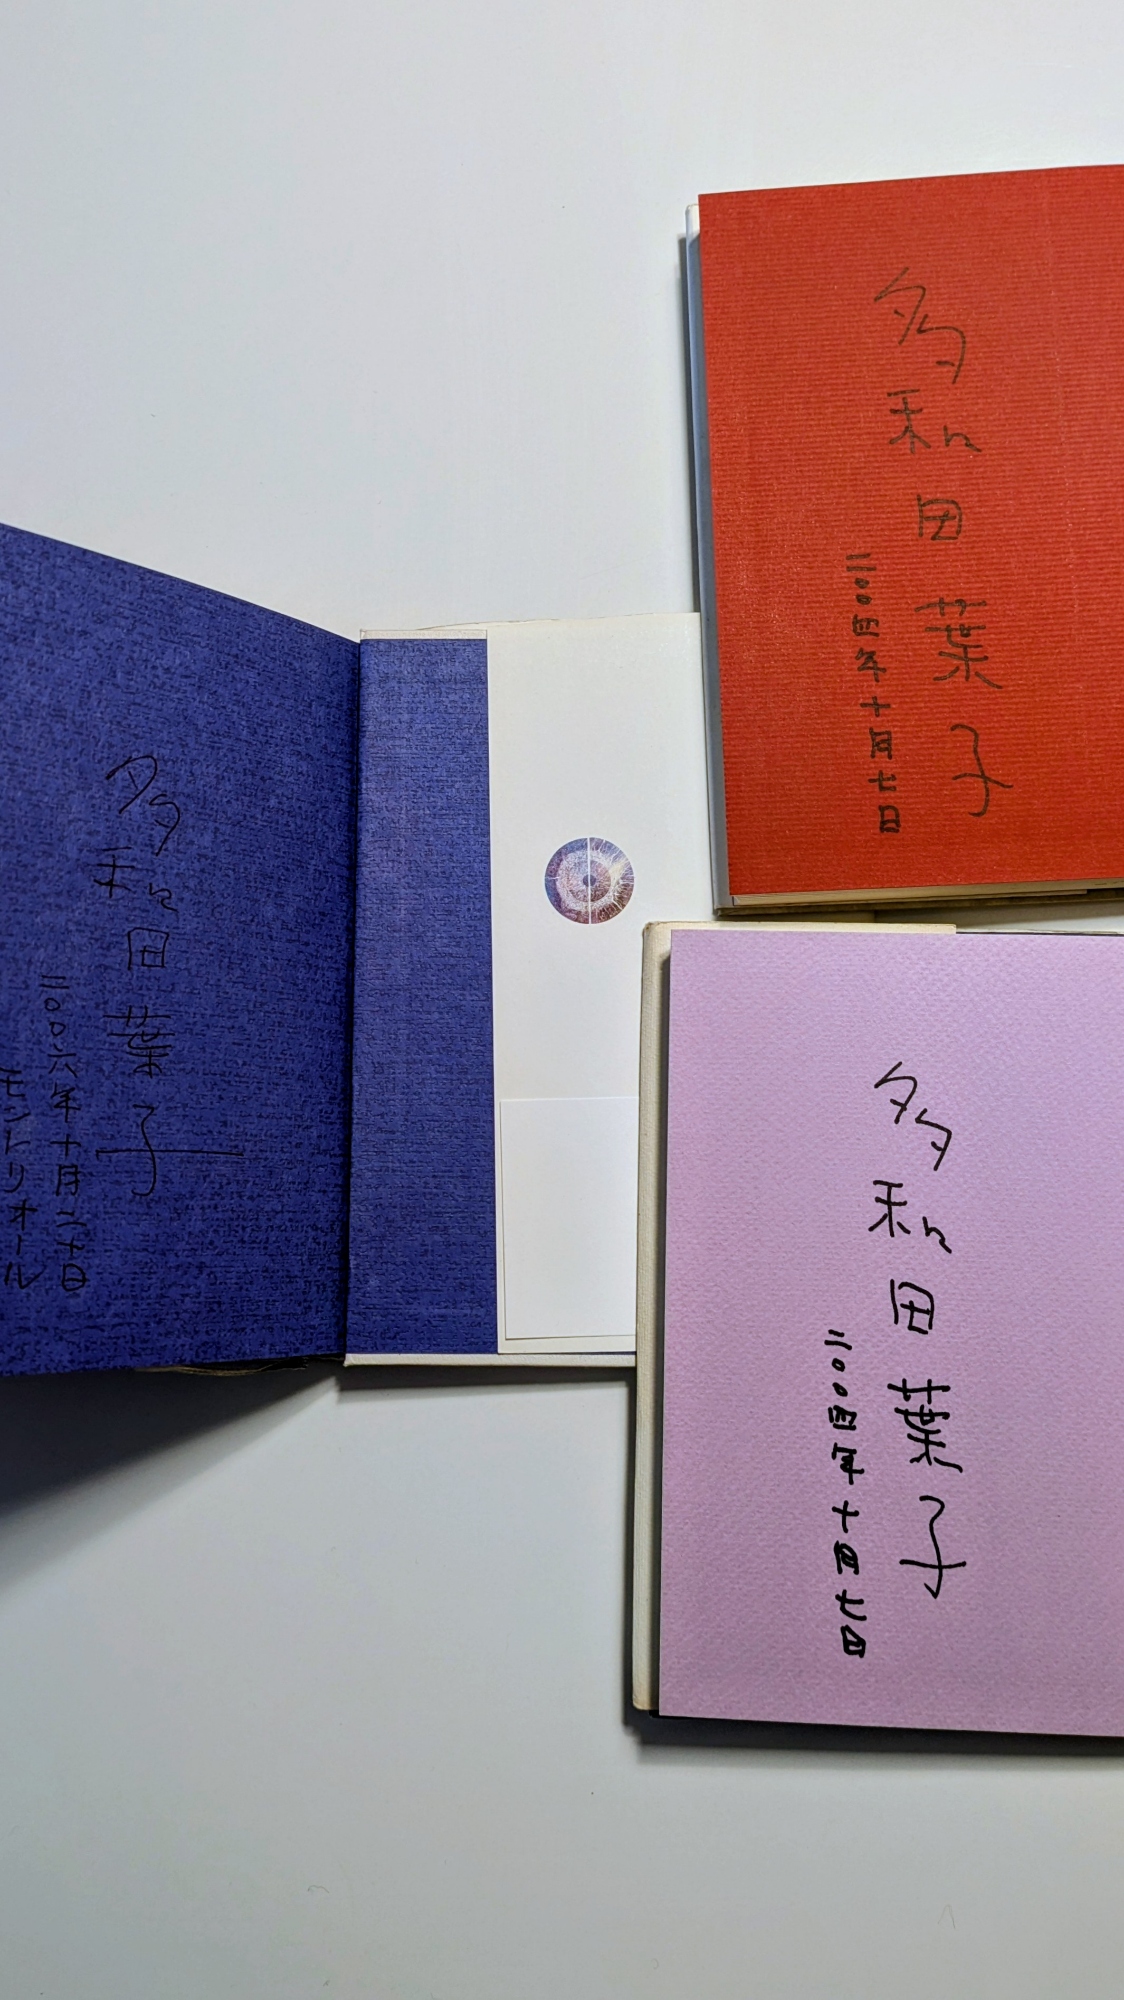 多和田葉子
二〇〇四年十月七日
多和田葉子
二〇〇六年十月二十日
モントリオール
多和田葉子
二〇〇四年十月七日